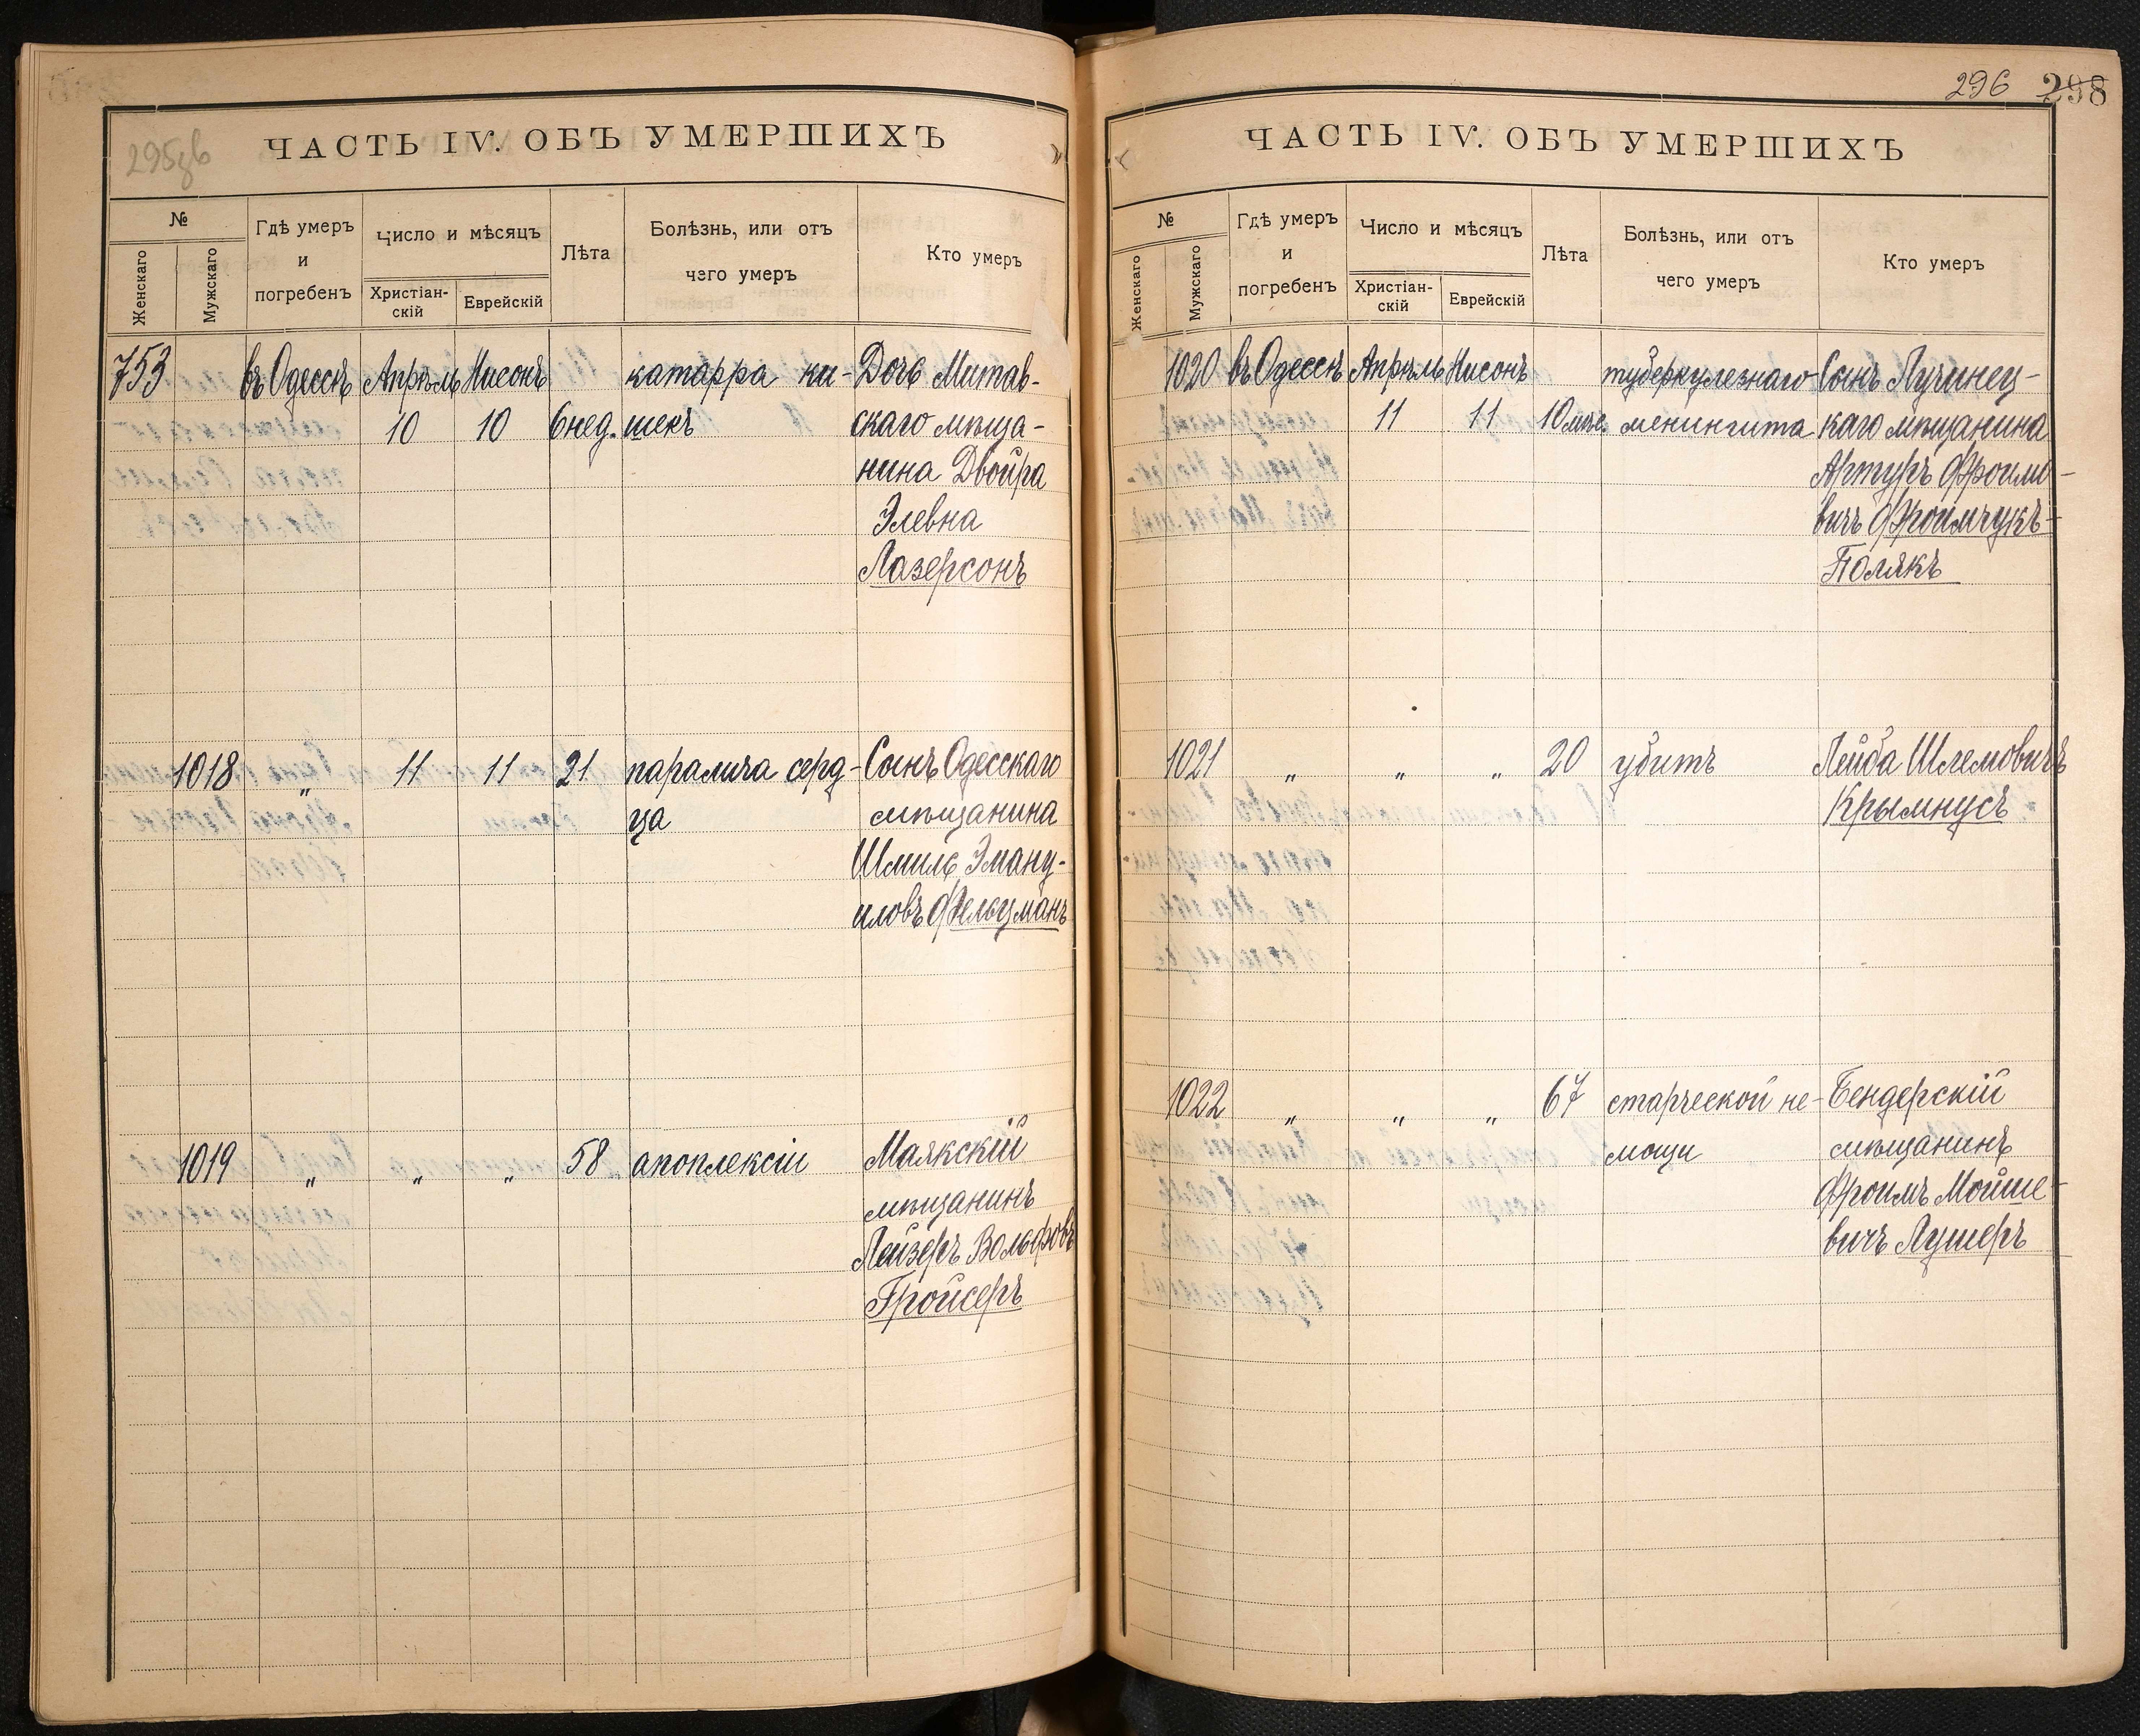 295об
ЧАСТЬ IV. ОБЪ УМЕРШИХЪ
№
Женскаго
Мужскаго
Гдѣ умеръ
и
погребенъ
Число и мѣсяцъ
Христіан-
скій
Еврейскій
Лѣта
Болѣзнь, или отъ
чего умеръ
Кто умеръ
753 въ Одессѣ Апрѣль Нисонъ катарра ки- Дочь Митав-
10 10 6 нед. шекъ скаго мѣща-
нина Двойра
Элевна
Лазерсонъ
1018 „ 11 11 21 паралича серд- Сынъ Одесскаго
ца мѣщанина
Шмиль Эману-
иловъ Фельцманъ
1019 „ „ „ 58 апоплексіи Маякскій
мѣщанинъ
Лейзеръ Вольфовъ
Гройсеръ
296 298
ЧАСТЬ IV. ОБЪ УМЕРШИХЪ
№
Женскаго
Мужскаго
Гдѣ умеръ
и
погребенъ
Число и мѣсяцъ
Христіан-
скій
Еврейскій
Лѣта
Болѣзнь, или отъ
чего умеръ
Кто умеръ
1020 въ Одессѣ Апрѣль Нисонъ туберкулезнаго Сынъ Лучинец-
11 11 10 мѣс. менингита каго мѣщанина
Артуръ Фроимо-
вичъ Фроимчукъ-
Полякъ
1021 „ „ „ 20 убитъ Лейба Шлемовичъ
Крымнусъ
1022 „ „ „ 67 старческой не- Бендерскій
мощи мѣщанинъ
Фроимъ Мойше-
вичъ Лушеръ